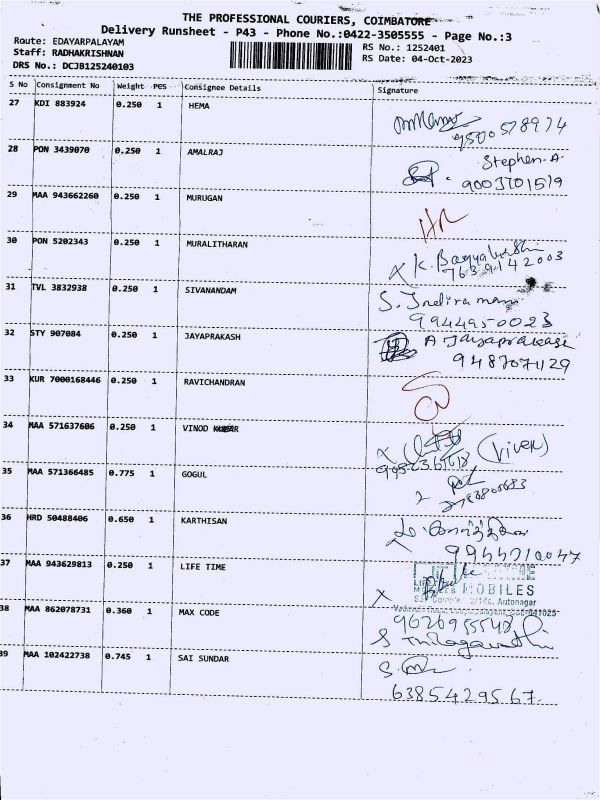 THE PROFESSIONAL COURIERS, COIMBATORE
Delivery Runsheet - P43 - Phone No.:0422-3505555 - Page No.:3
Route: EDAYARPALAYAM
Staff: RADHAKRISHNAN
DRS No.: DCJB125240103
RS No.: 1252401
RS Date: 04-Oct-2023
S No Consignment No Weight PES Consignee Details Signature
27 KDI 883924 0.250 1 HEMA
9500578974
28 PON 3439070 0.250 1 AMALRAJ
Stephen.A
9003701519
29 MAA 943662260 0.250 1 MURUGAN
30 PON 5202343 0.250 1 MURALITHARAN
7639142003
31 TVL 3832938 0.250 1 SIVANANDAM
S. Indira
9944950023
32 STY 907084 0.250 1 JAYAPRAKASH
A Jayaprakash
9487071129
33 KUR 7000168446 0.250 1 RAVICHANDRAN
34 MAA 571637606 0.250 1 VINOD
(Vivek)
35 MAA 571366485 0.775 1 GOGUL
36 HRD 50488406 0.650 1 KARTHISAN
9944710047
37 MAA 943629813 0.250 1 LIFE TIME
MOBILES
38 MAA 862078731 0.360 1 MAX CODE
9626955548
39 MAA 102422738 0.745 1 SAI SUNDAR
6385429567.